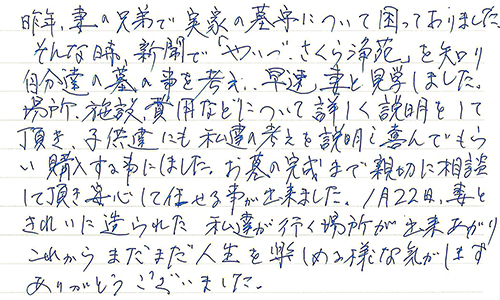 昨年、妻の兄弟で実家の墓守について困っておりました
そんな時、新聞で「やいづさくら浄苑」を知り
自分達の墓の事を考え、早速、妻と見学しました。
場所、施設、費用などについて詳しく説明をして
頂き、子供達にも私達の考えを説明し喜んでもら
い購入する事にしました。お墓の完成まで親切に相談
して頂き安心して任せる事が出来ました。1月22日、妻と
きれいに造られた 私達が行く場所が出来あがり
これから まだまだ人生を楽しめる様な気がします
ありがとうございました。